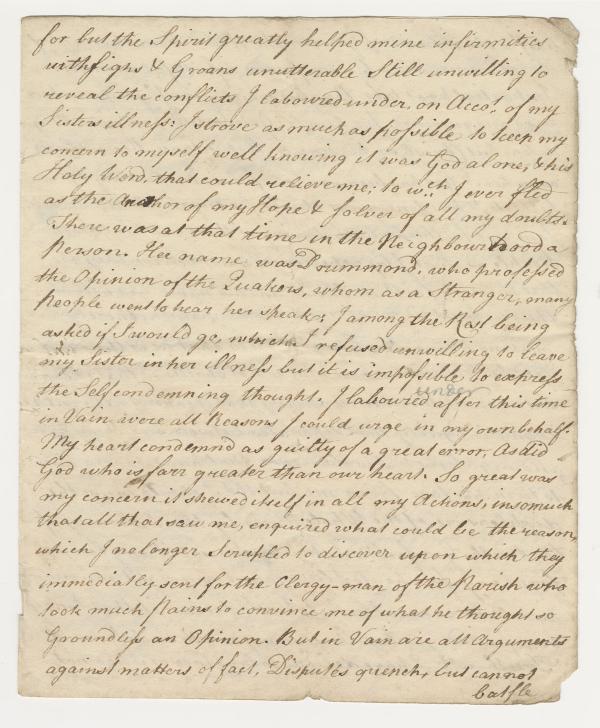 for but the Spirit greatly helped mine infirmities
with sighs & Groans unutterable Still unwilling to
reveal the conflicts I laboured under, on Acco.t of my
Sisters illness: I strove as much as possible to keep my
concern to myself well knowing it was God alone, & his
Holy Word, that could relieve me; to w.ch I ever fled
as the Anchor of my Hope & Solver of all my doubts.
There was at that time in the Neighbourhood a
Person. Her name was Drummond, who professed
the Opinion of the Quakers, whom as a Stranger, many
People went to hear her speak; I among the Rest being
asked if I would go, which I refused unwilling to leave
my Sister in her illness but it is impossible to express
the Selfcondemning thought. I laboured under after this time
in Vain were all Reasons I could urge in my own behalf.
My heart condemnd as guilty of a great error, As did
God who is farr greater than our heart. So great was
my concern it shewed itself in all my Actions, insomuch
that all that saw me, enquired what could be the reason,
which I no longer Scrupled to discover upon which they
immediatly sent for the Clergy-man of the Parish who
took much Pains to convince me of what he thought so
Groundless an Opinion. But in Vain are all Arguments
against matters of fact, Disputes quench, but cannot
baffle